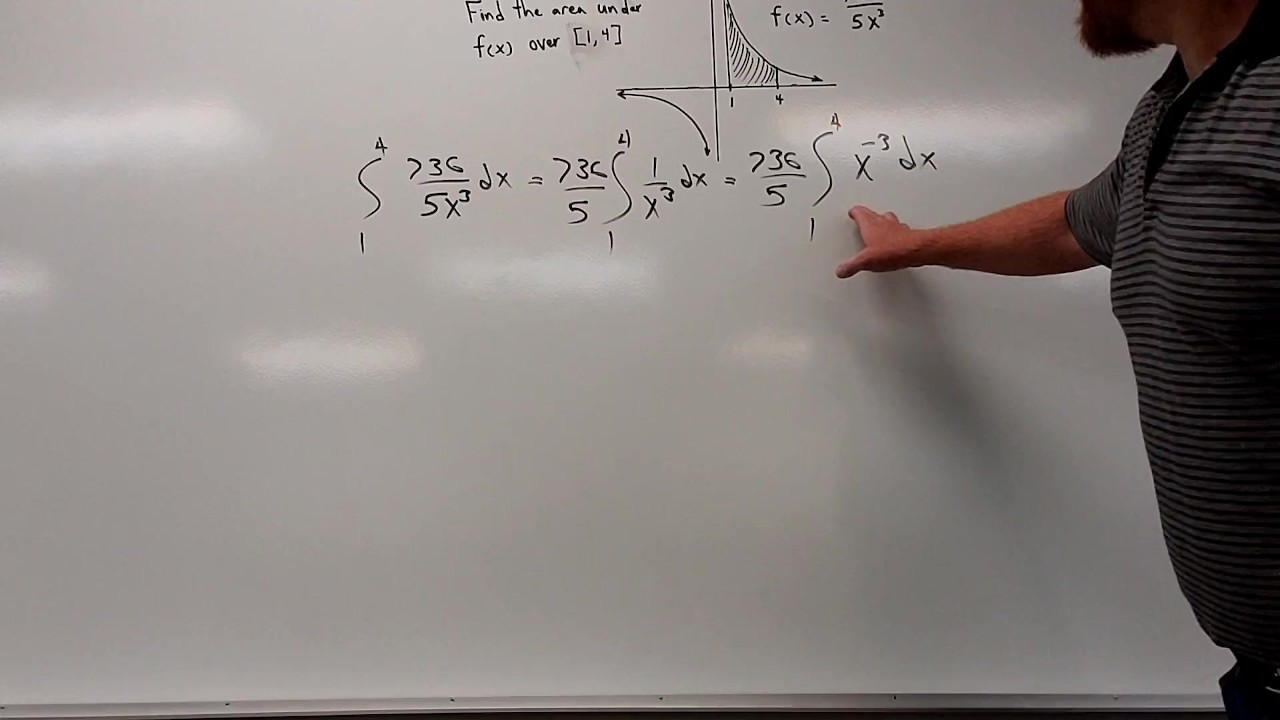 Find the area under
f(x) over [1,4]
f(x) = /5x³
1 4
∫₁⁴ 736/5x³ dx = 736/5 ∫₁⁴ 1/x³ dx = 736/5 ∫₁⁴ x⁻³ dx